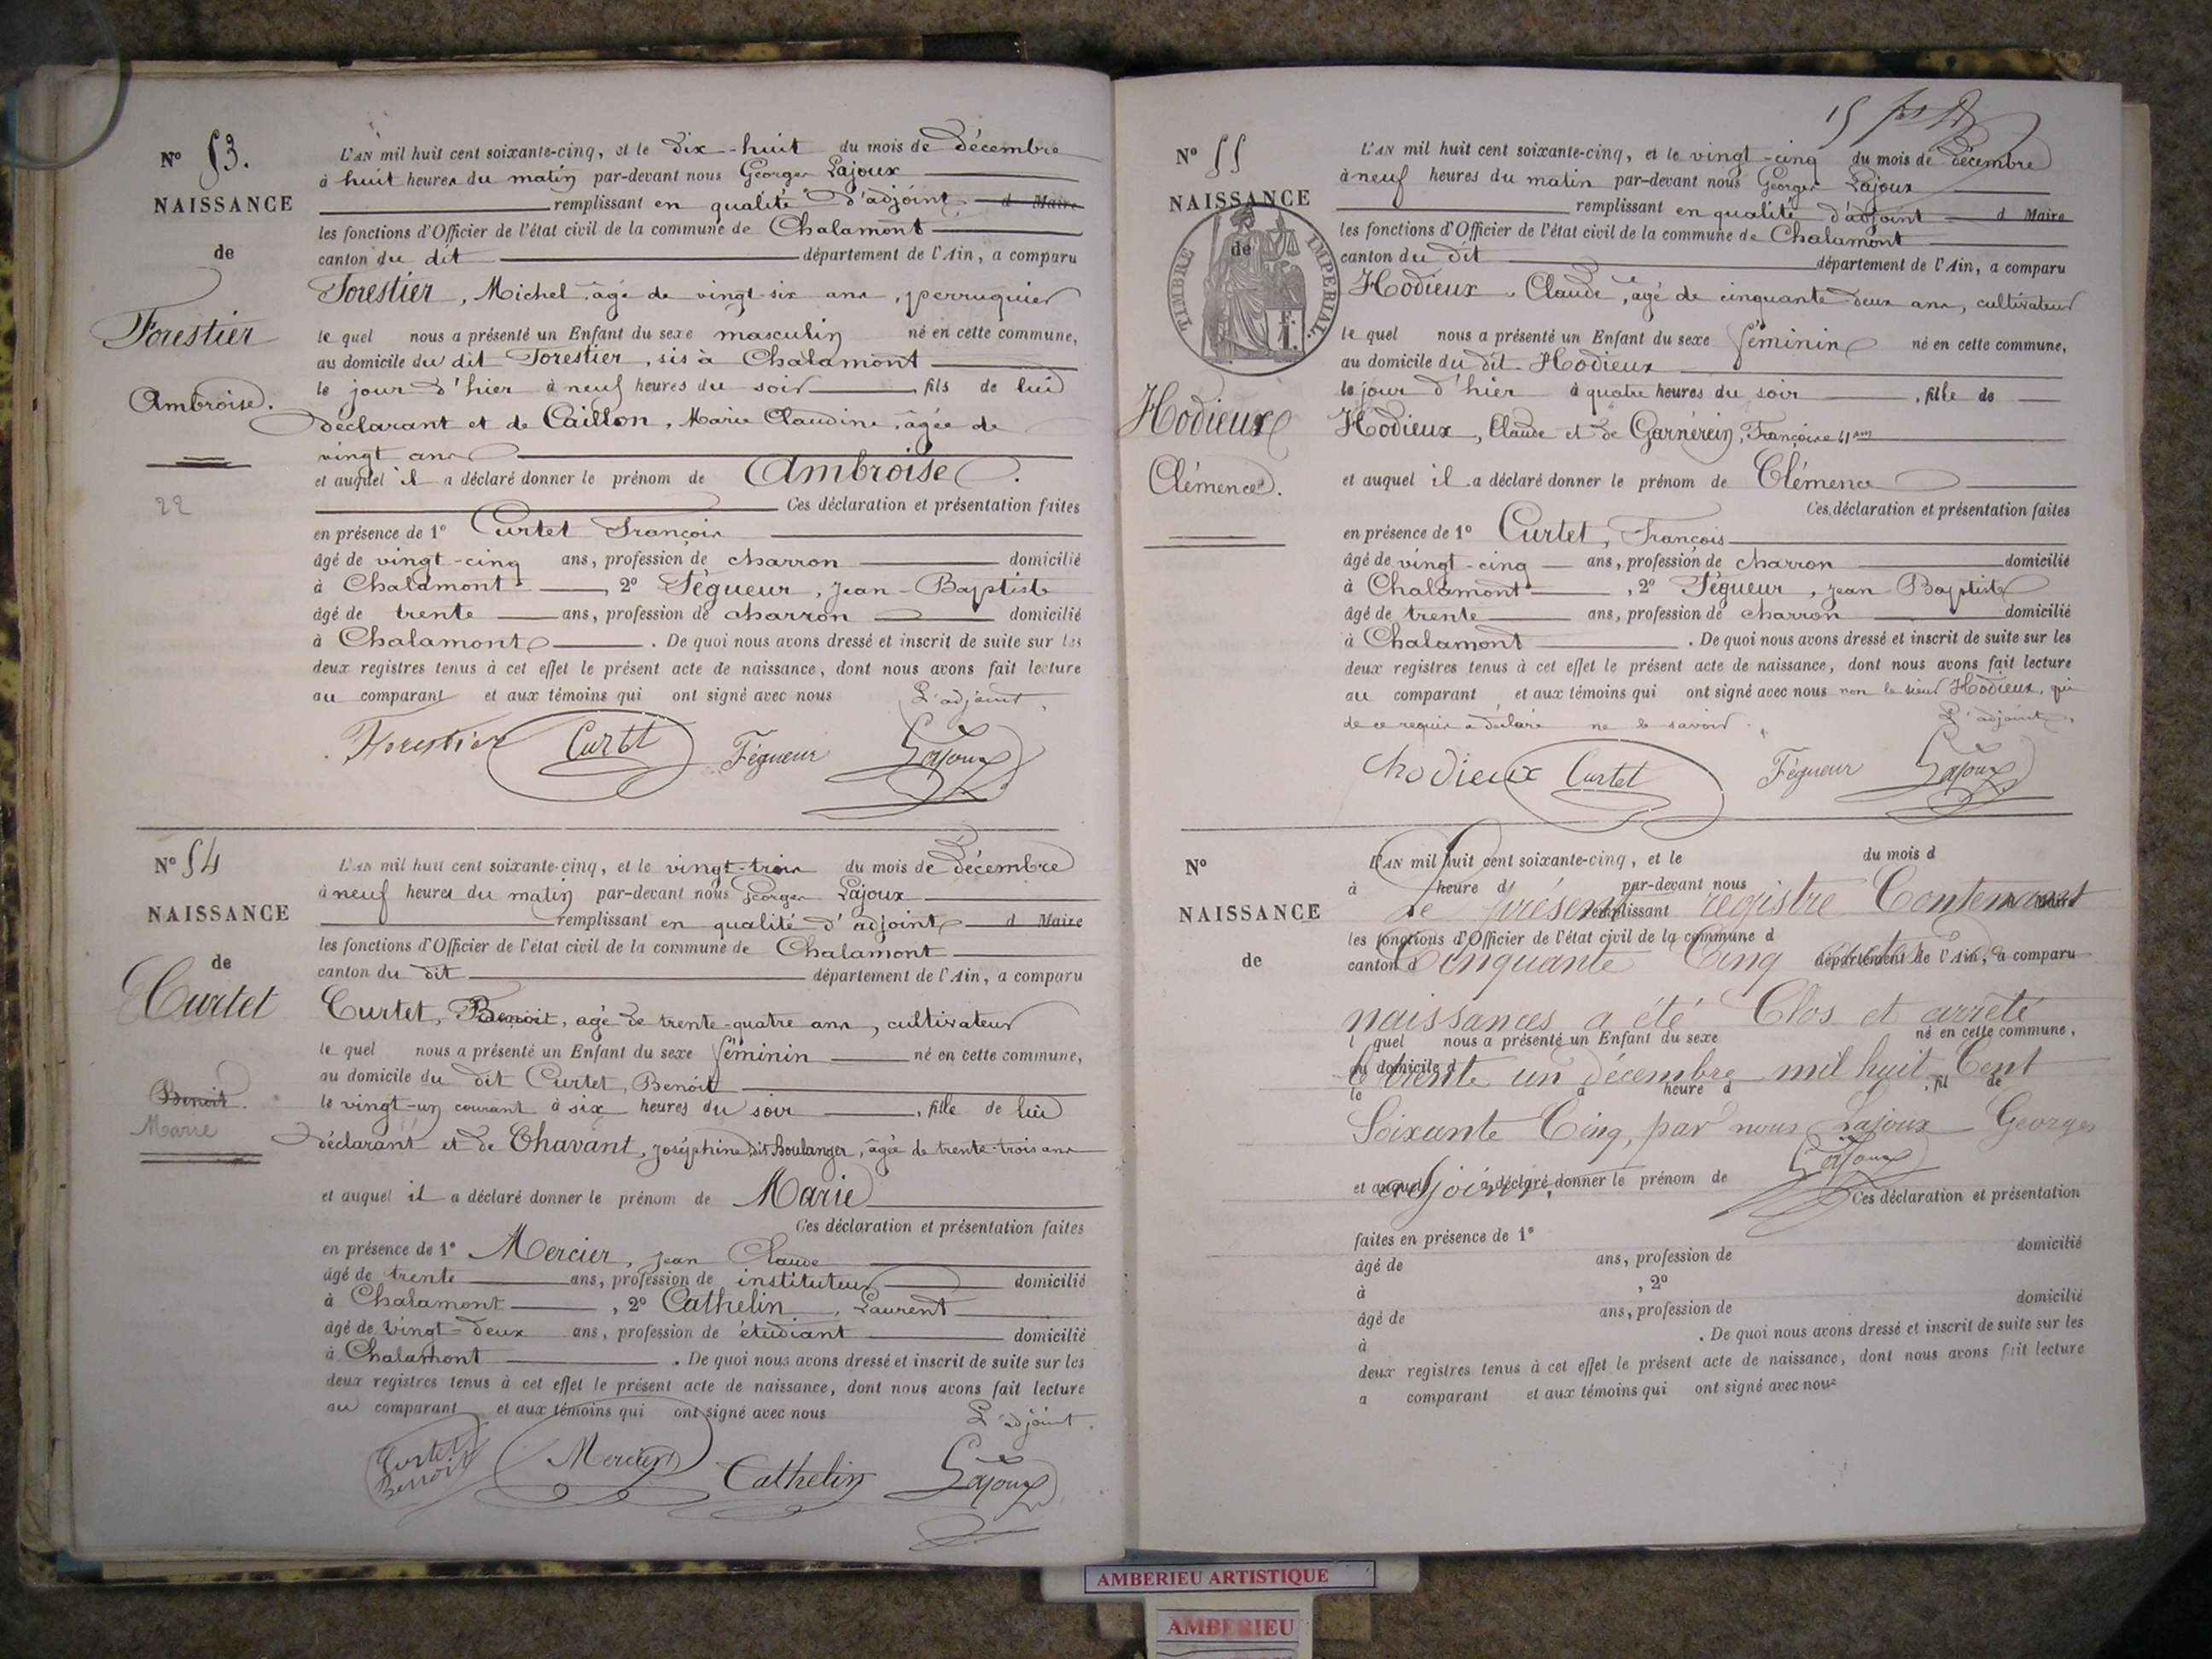 N° 53.
NAISSANCE
de
Forestier
Ambroise.
22
L'AN mil huit cent soixante-cinq, et le dix-huit du mois de décembre
à huit heures du matin par-devant nous Georges Lajoux
remplissant en qualité d'adjoint d Maire
les fonctions d'Officier de l'état civil de la commune de Chalamont
canton du dit département de l'Ain, a comparu
Forestier, Michel, âgé de vingt-six ans, perruquier
le quel nous a présenté un Enfant du sexe masculin né en cette commune,
au domicile du dit Forestier, sis à Chalamont
le jour d'hier à neuf heures du soir, fils de lui
déclarant et de Caillon, Marie Claudine, âgée de
vingt ans
et auquel il a déclaré donner le prénom de Ambroise.
Ces déclaration et présentation faites
en présence de 1° Curtet François
âgé de vingt-cinq ans, profession de charron domicilié
à Chalamont, 2° Fégueur, Jean-Baptiste
âgé de trente ans, profession de charron domicilié
à Chalamont. De quoi nous avons dressé et inscrit de suite sur les
deux registres tenus à cet effet le présent acte de naissance, dont nous avons fait lecture
au comparant et aux témoins qui ont signé avec nous L'adjoint,
Forestier Curtet Fégueur Lajoux
N° 54
NAISSANCE
de
Curtet
Benoit.
Marie
L'AN mil huit cent soixante-cinq, et le vingt-trois du mois de décembre
à neuf heures du matin par-devant nous Georges Lajoux
remplissant en qualité d'adjoint d Maire
les fonctions d'Officier de l'état civil de la commune de Chalamont
canton du dit département de l'Ain, a comparu
Curtet, Benoit, agé de trente-quatre ans, cultivateur
le quel nous a présenté un Enfant du sexe féminin né en cette commune,
au domicile du dit Curtet, Benoit
le vingt-un courant à six heures du soir, fille de lui
déclarant et de Chavant, Joséphine dit Boulanger, âgée de trente-trois ans
et auquel il a déclaré donner le prénom de Marie
Ces déclaration et présentation faites
en présence de 1° Mercier, Jean Claude
âgé de trente ans, profession de instituteur domicilié
à Chalamont, 2° Cathelin, Laurent
âgé de vingt-deux ans, profession de étudiant domicilié
à Chalamont. De quoi nous avons dressé et inscrit de suite sur les
deux registres tenus à cet effet le présent acte de naissance, dont nous avons fait lecture
au comparant et aux témoins qui ont signé avec nous L'adjoint.
Curtet Benoit Mercier Cathelin Lajoux
15
N° 55
NAISSANCE
de
TIMBRE IMPÉRIAL
1 F.
Hodieux
Clémence.
L'AN mil huit cent soixante-cinq, et le vingt-cinq du mois de décembre
à neuf heures du matin par-devant nous Georges Lajoux
remplissant en qualité d'adjoint d Maire
les fonctions d'Officier de l'état civil de la commune de Chalamont
canton du dit département de l'Ain, a comparu
Hodieux, Claude, agé de cinquante-deux ans, cultivateur
le quel nous a présenté un Enfant du sexe féminin né en cette commune,
au domicile du dit Hodieux
le jour d'hier à quatre heures du soir, fille de
Hodieux, Claude et de Garnérein, Françoise 41 ans
et auquel il a déclaré donner le prénom de Clémence
Ces déclaration et présentation faites
en présence de 1° Curtet, François
âgé de vingt-cinq ans, profession de charron domicilié
à Chalamont, 2° Fégueur, Jean Baptiste
âgé de trente ans, profession de charron domicilié
à Chalamont. De quoi nous avons dressé et inscrit de suite sur les
deux registres tenus à cet effet le présent acte de naissance, dont nous avons fait lecture
au comparant et aux témoins qui ont signé avec nous non le sieur Hodieux, qui
de ce requis a déclaré ne le savoir. L'adjoint,
chodieux Curtet Fégueur Lajoux
N°
NAISSANCE
de
L'AN mil huit cent soixante-cinq, et le du mois d
à heure d par-devant nous
Le présent registre Contenant
remplissant
les fonctions d'Officier de l'état civil de la commune d
Cinquante Cinq actes de
canton d département de l'Ain, a comparu
naissances a été Clos et arrêté
l quel nous a présenté un Enfant du sexe né en cette commune,
au domicile d
le trente un décembre mil huit Cent
le à heure d, fil de
Soixante Cinq, par nous Lajoux Georges
adjoint. Lajoux
et auquel a déclaré donner le prénom de
Ces déclaration et présentation
faites en présence de 1°
âgé de ans, profession de domicilié
à , 2°
âgé de ans, profession de domicilié
à . De quoi nous avons dressé et inscrit de suite sur les
deux registres tenus à cet effet le présent acte de naissance, dont nous avons fait lecture
a comparant et aux témoins qui ont signé avec nous
AMBERIEU ARTISTIQUE
AMBERIEU